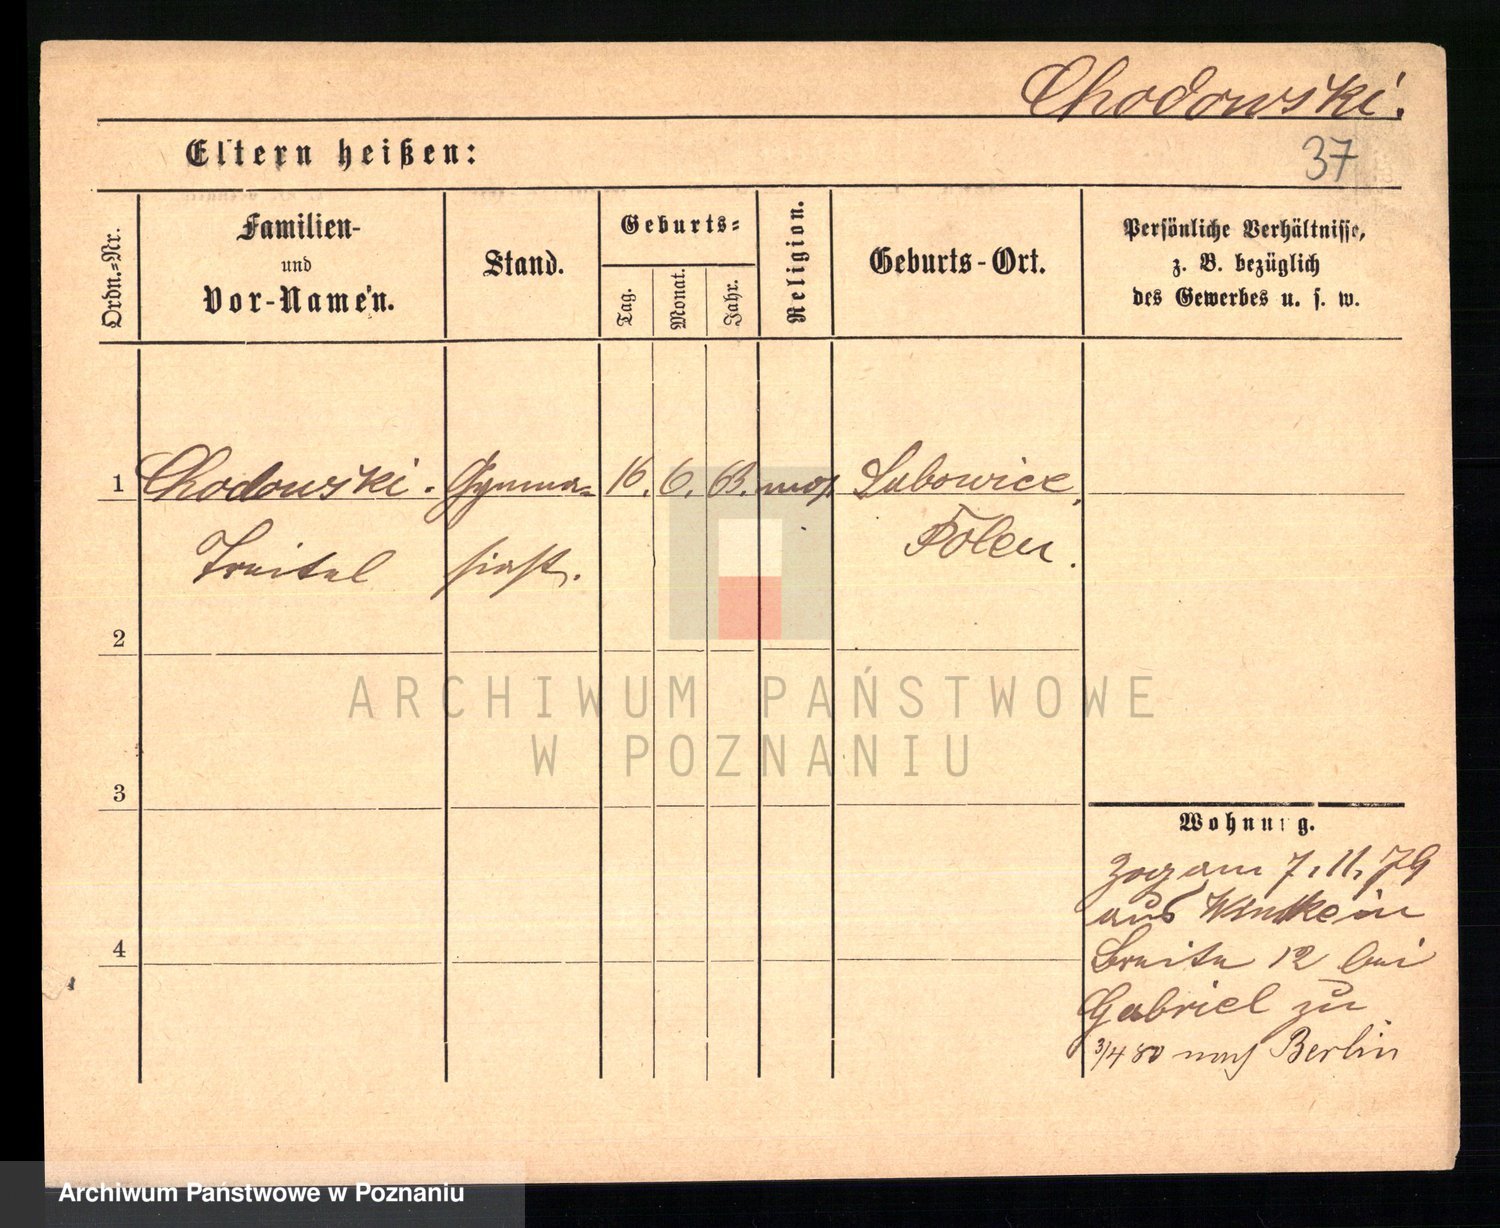 Chodowski.
37
Eltern heißen:
Ordn.=Nr.
Familien-
und
Vor-Namen.
Stand.
Geburts=
Tag.
Monat.
Jahr.
Religion.
Geburts-Ort.
Persönliche Verhältnisse,
z. B. bezüglich
des Gewerbes u. s. w.
1 Chodowski. Gymna= 16. 6. 63. mos Lubowicz,
Treitel siast. Polen.
2
3
4
Wohnung.
Zog am 7. 11. 79
aus in
Breite 12 bei
Gabriel zu
3/4 80 nach Berlin
ARCHIWUM PAŃSTWOWE
W POZNANIU
Archiwum Państwowe w Poznaniu